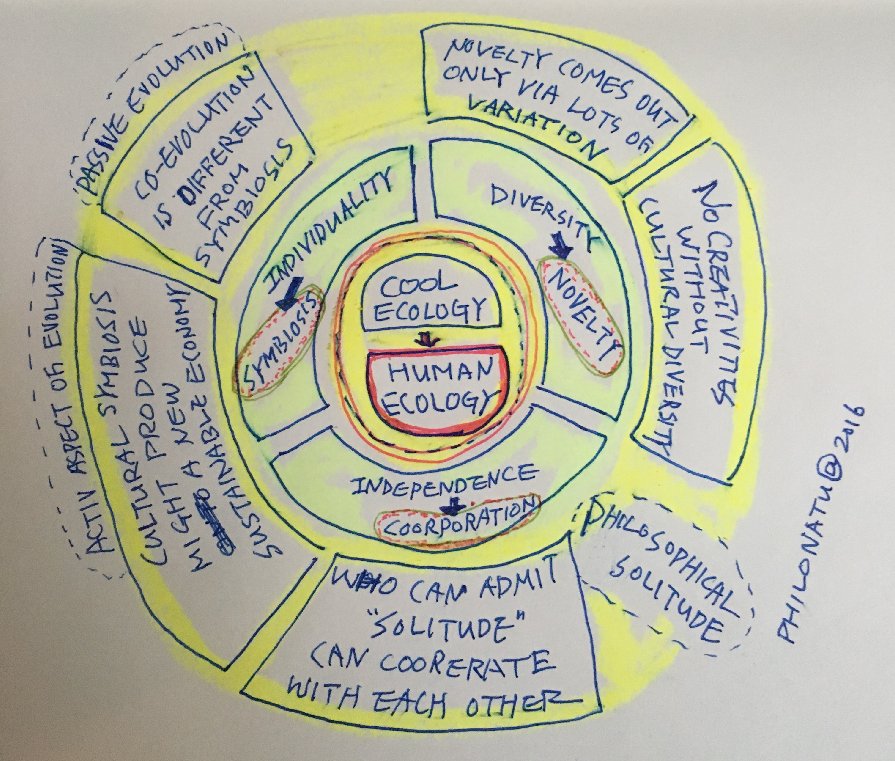 PASSIVE EVOLUTION
CO-EVOLUTION
IS DIFFERENT
FROM
SYMBIOSIS
NOVELTY COMES OUT
ONLY VIA LOTS OF
VARIATION
NO CREATIVITIES
WITHOUT
CULTURAL DIVERSITY
INDIVIDUALITY
SYMBIOSIS
DIVERSITY
NOVELTY
COOL
ECOLOGY
HUMAN
ECOLOGY
INDEPENDENCE
COORPORATION
ACTIV ASPECT OF EVOLUTION
CULTURAL SYMBIOSIS
MIGHT PRODUCE
A NEW
SUSTAINABLE ECONOMY
WHO CAN ADMIT
"SOLITUDE"
CAN COORERATE
WITH EACH OTHER
PHILOSOPHICAL
SOLITUDE
PHILONATU@2016